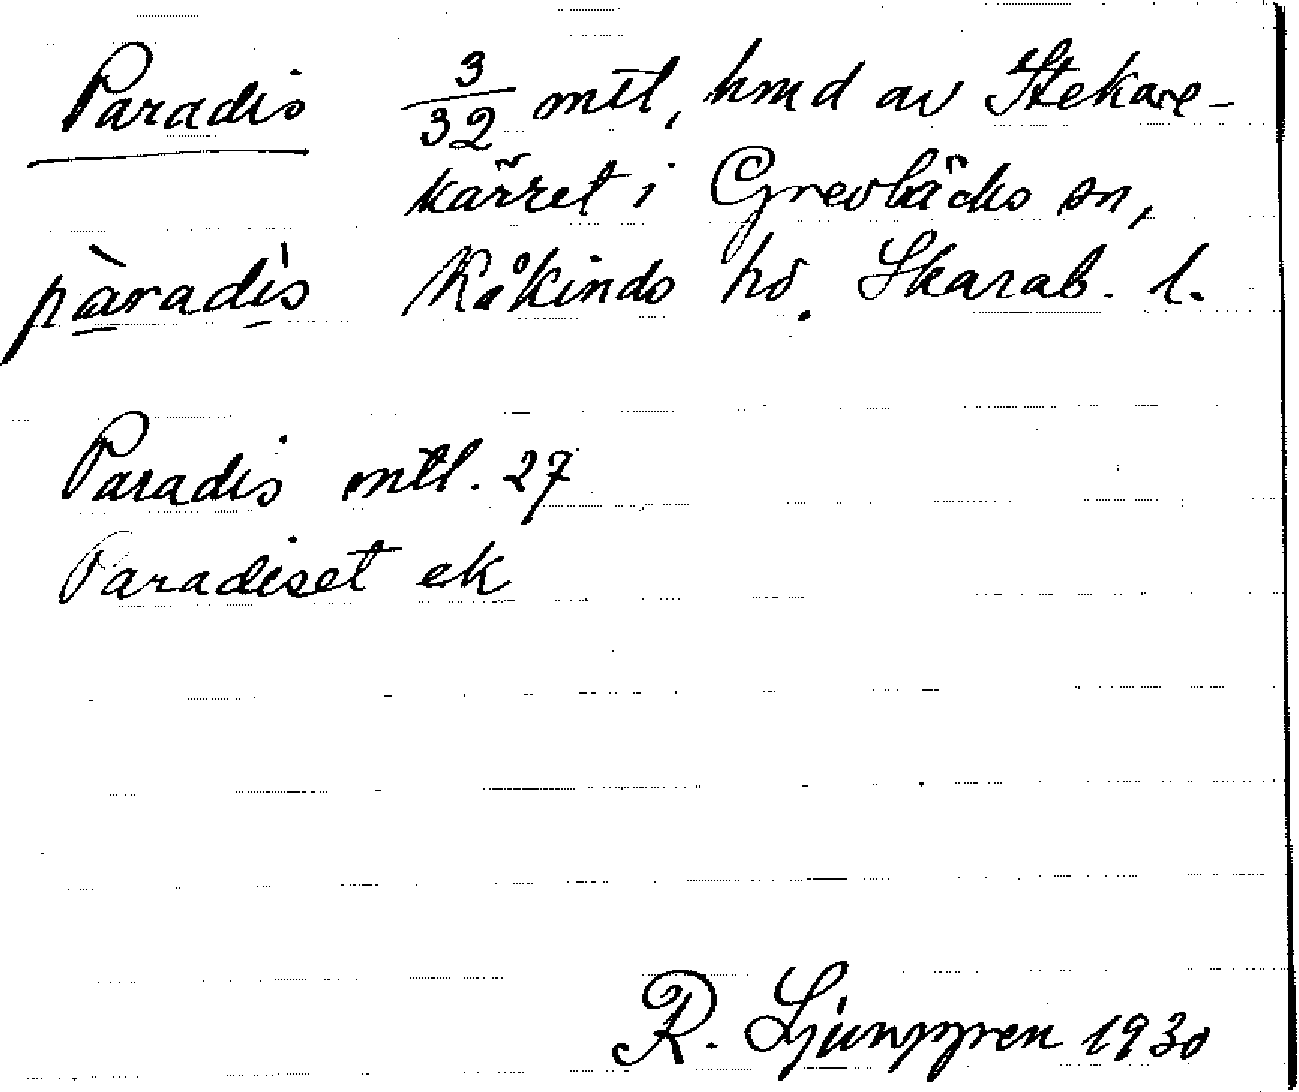 Paradis 3/32 mtl, hmd av Stekare-
kärret i Grevbäcks sn,
pàradìs Kåkinds hd. Skarab. l.
Paradis mtl. 27
Paradiset ek
R. Ljunggren 1930